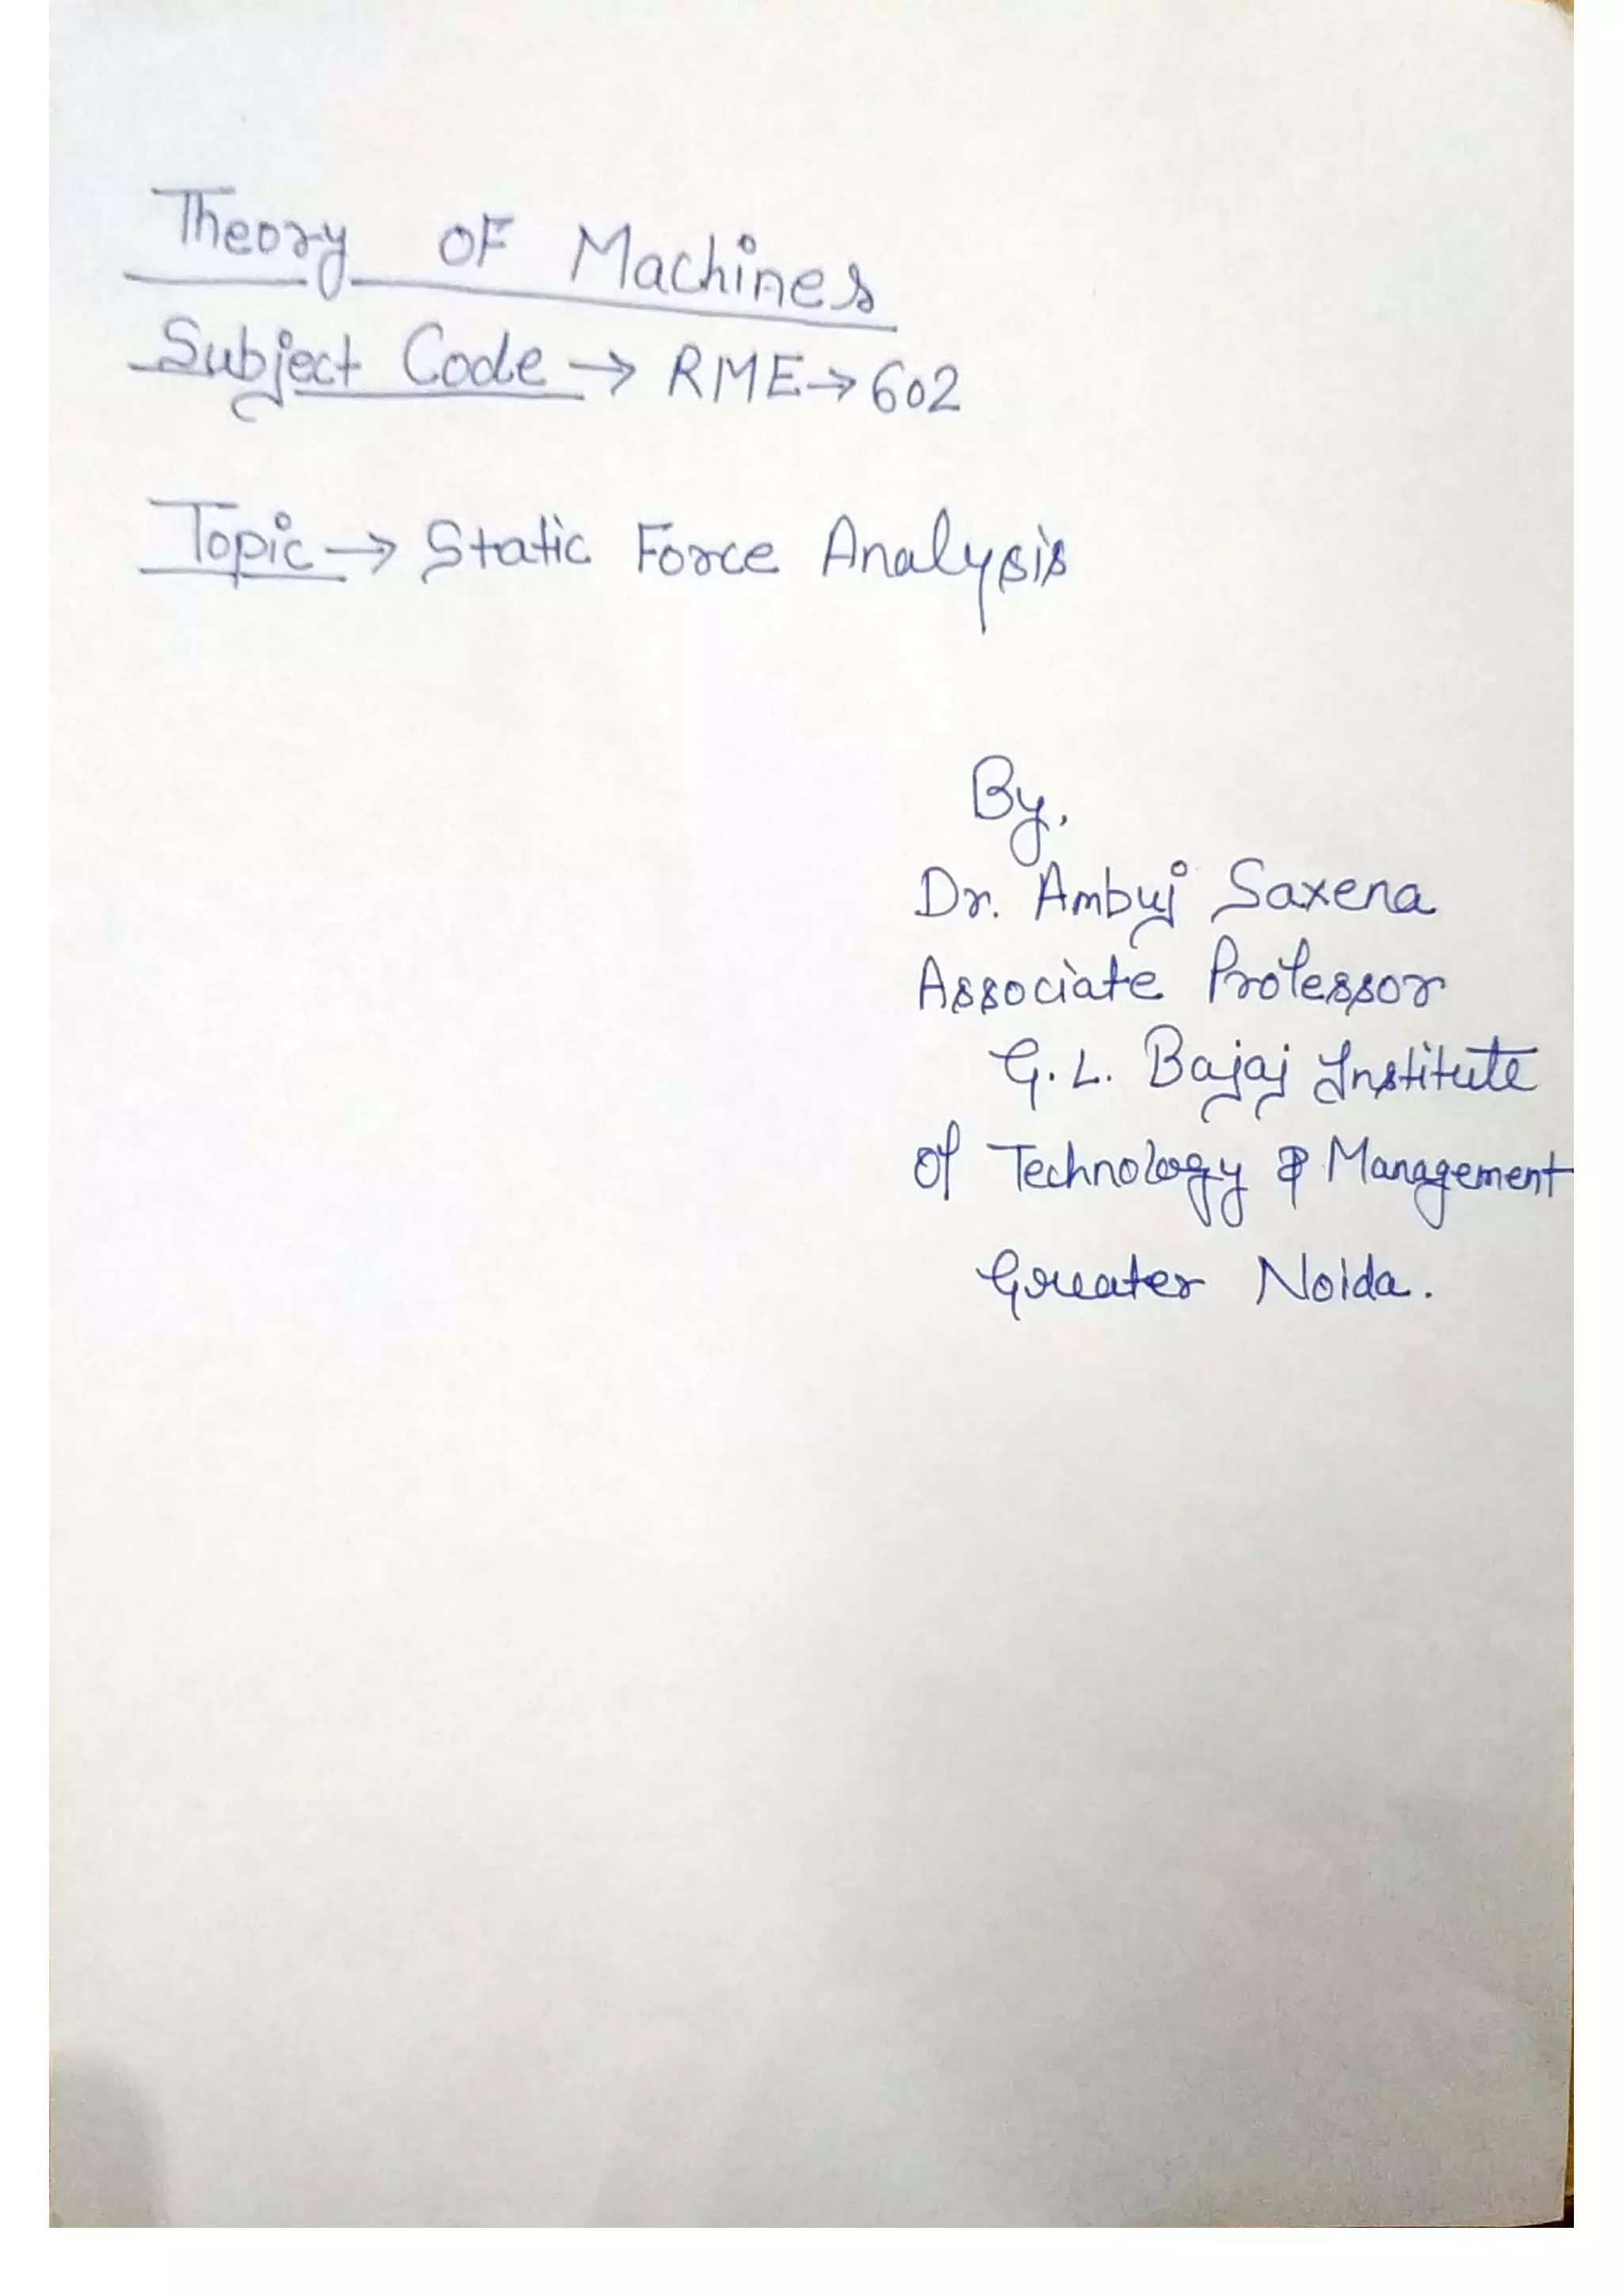 Theory OF Machines
Subject Code → RME → 602
Topic → Static Force Analysis
By,
Dr. Ambuj Saxena
Associate Professor
G. L. Bajaj Institute
of Technology & Management
Greater Noida.